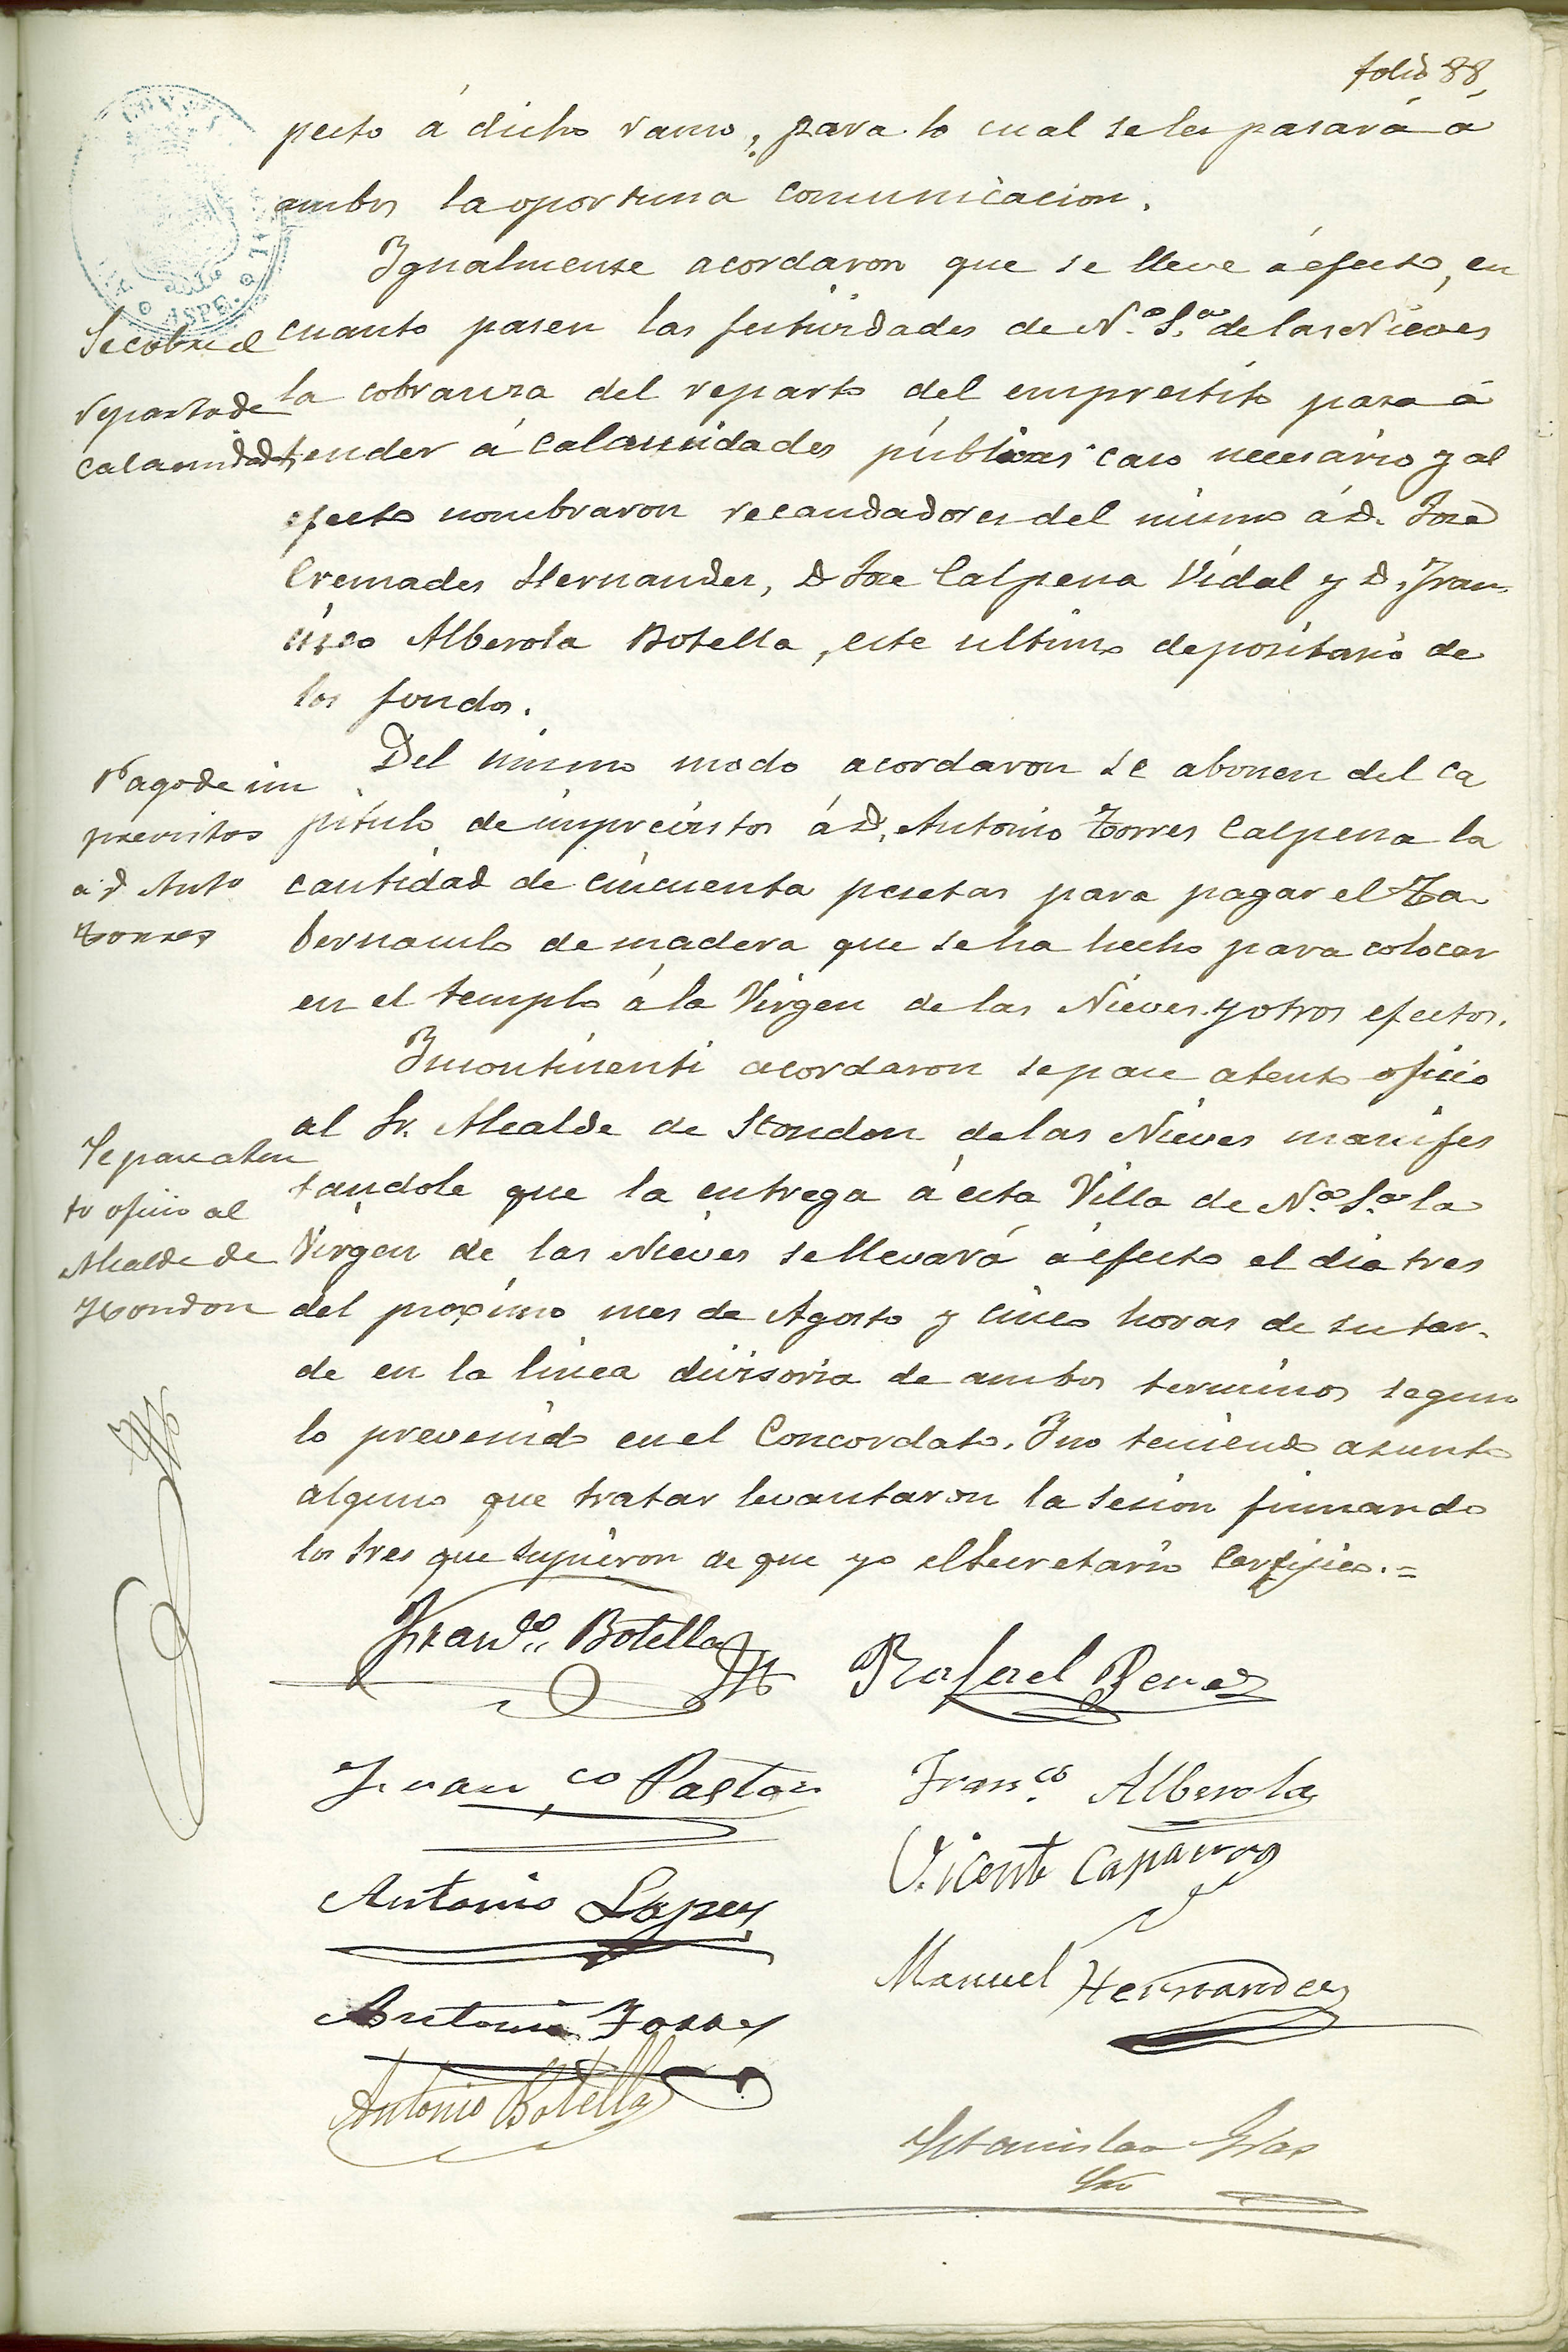 folio 88,
pecto á dicho ramo; para lo cual se les pasará á
ambos la oportuna comunicacion.
Igualmente acordaron que se lleve á efecto, en
Se cobre el
reparto de
calamidades
cuanto pasen las festividades de N.ª S.ª de las Nieves
la cobranza del reparto del emprestito para a
tender á calamidades públicas caso necesario y al
efecto nombraron recaudadores del mismo á D. José
Cremades Hernandez, D Jose Calpena Vidal y D. Fran
cisco Alberola Botella, este ultimo depositario de
los fondos.
Pago de im
previstos
a D Anto
Torres
Del mismo modo acordaron se abonen del ca
pitulo de imprevistos á D. Antonio Torres Calpena la
cantidad de cincuenta pesetas para pagar el Ta-
bernaculo de madera que se ha hecho para colocar
en el templo á la Virgen de las Nieves y otros efectos.
Incontinenti acordaron se pase atento oficio
Se pase aten
to oficio al
Alcalde de
Hondon
al Sr. Alcalde de Hondon de las Nieves manifes
tandole que la entrega á esta Villa de N.ª S.ª la
Virgen de las Nieves se llevará á efecto el dia tres
del proximo mes de Agosto y cinco horas de su tar-
de en la linea divisoria de ambos terminos segun
lo prevenido en el Concordato. Y no teniendo asunto
alguno que tratar levantaron la sesion firmando
los tres que supieron de que yo el Secretario Certifico.=
Franco. Botella
Rafael Perez
Franco Pastor
Franco. Alberola
Vicente Caparros
Antonio Lopez
Manuel Hernandez
Antonio Torres
Antonio Botella
Estanislao Gras
Srio
ASPE.